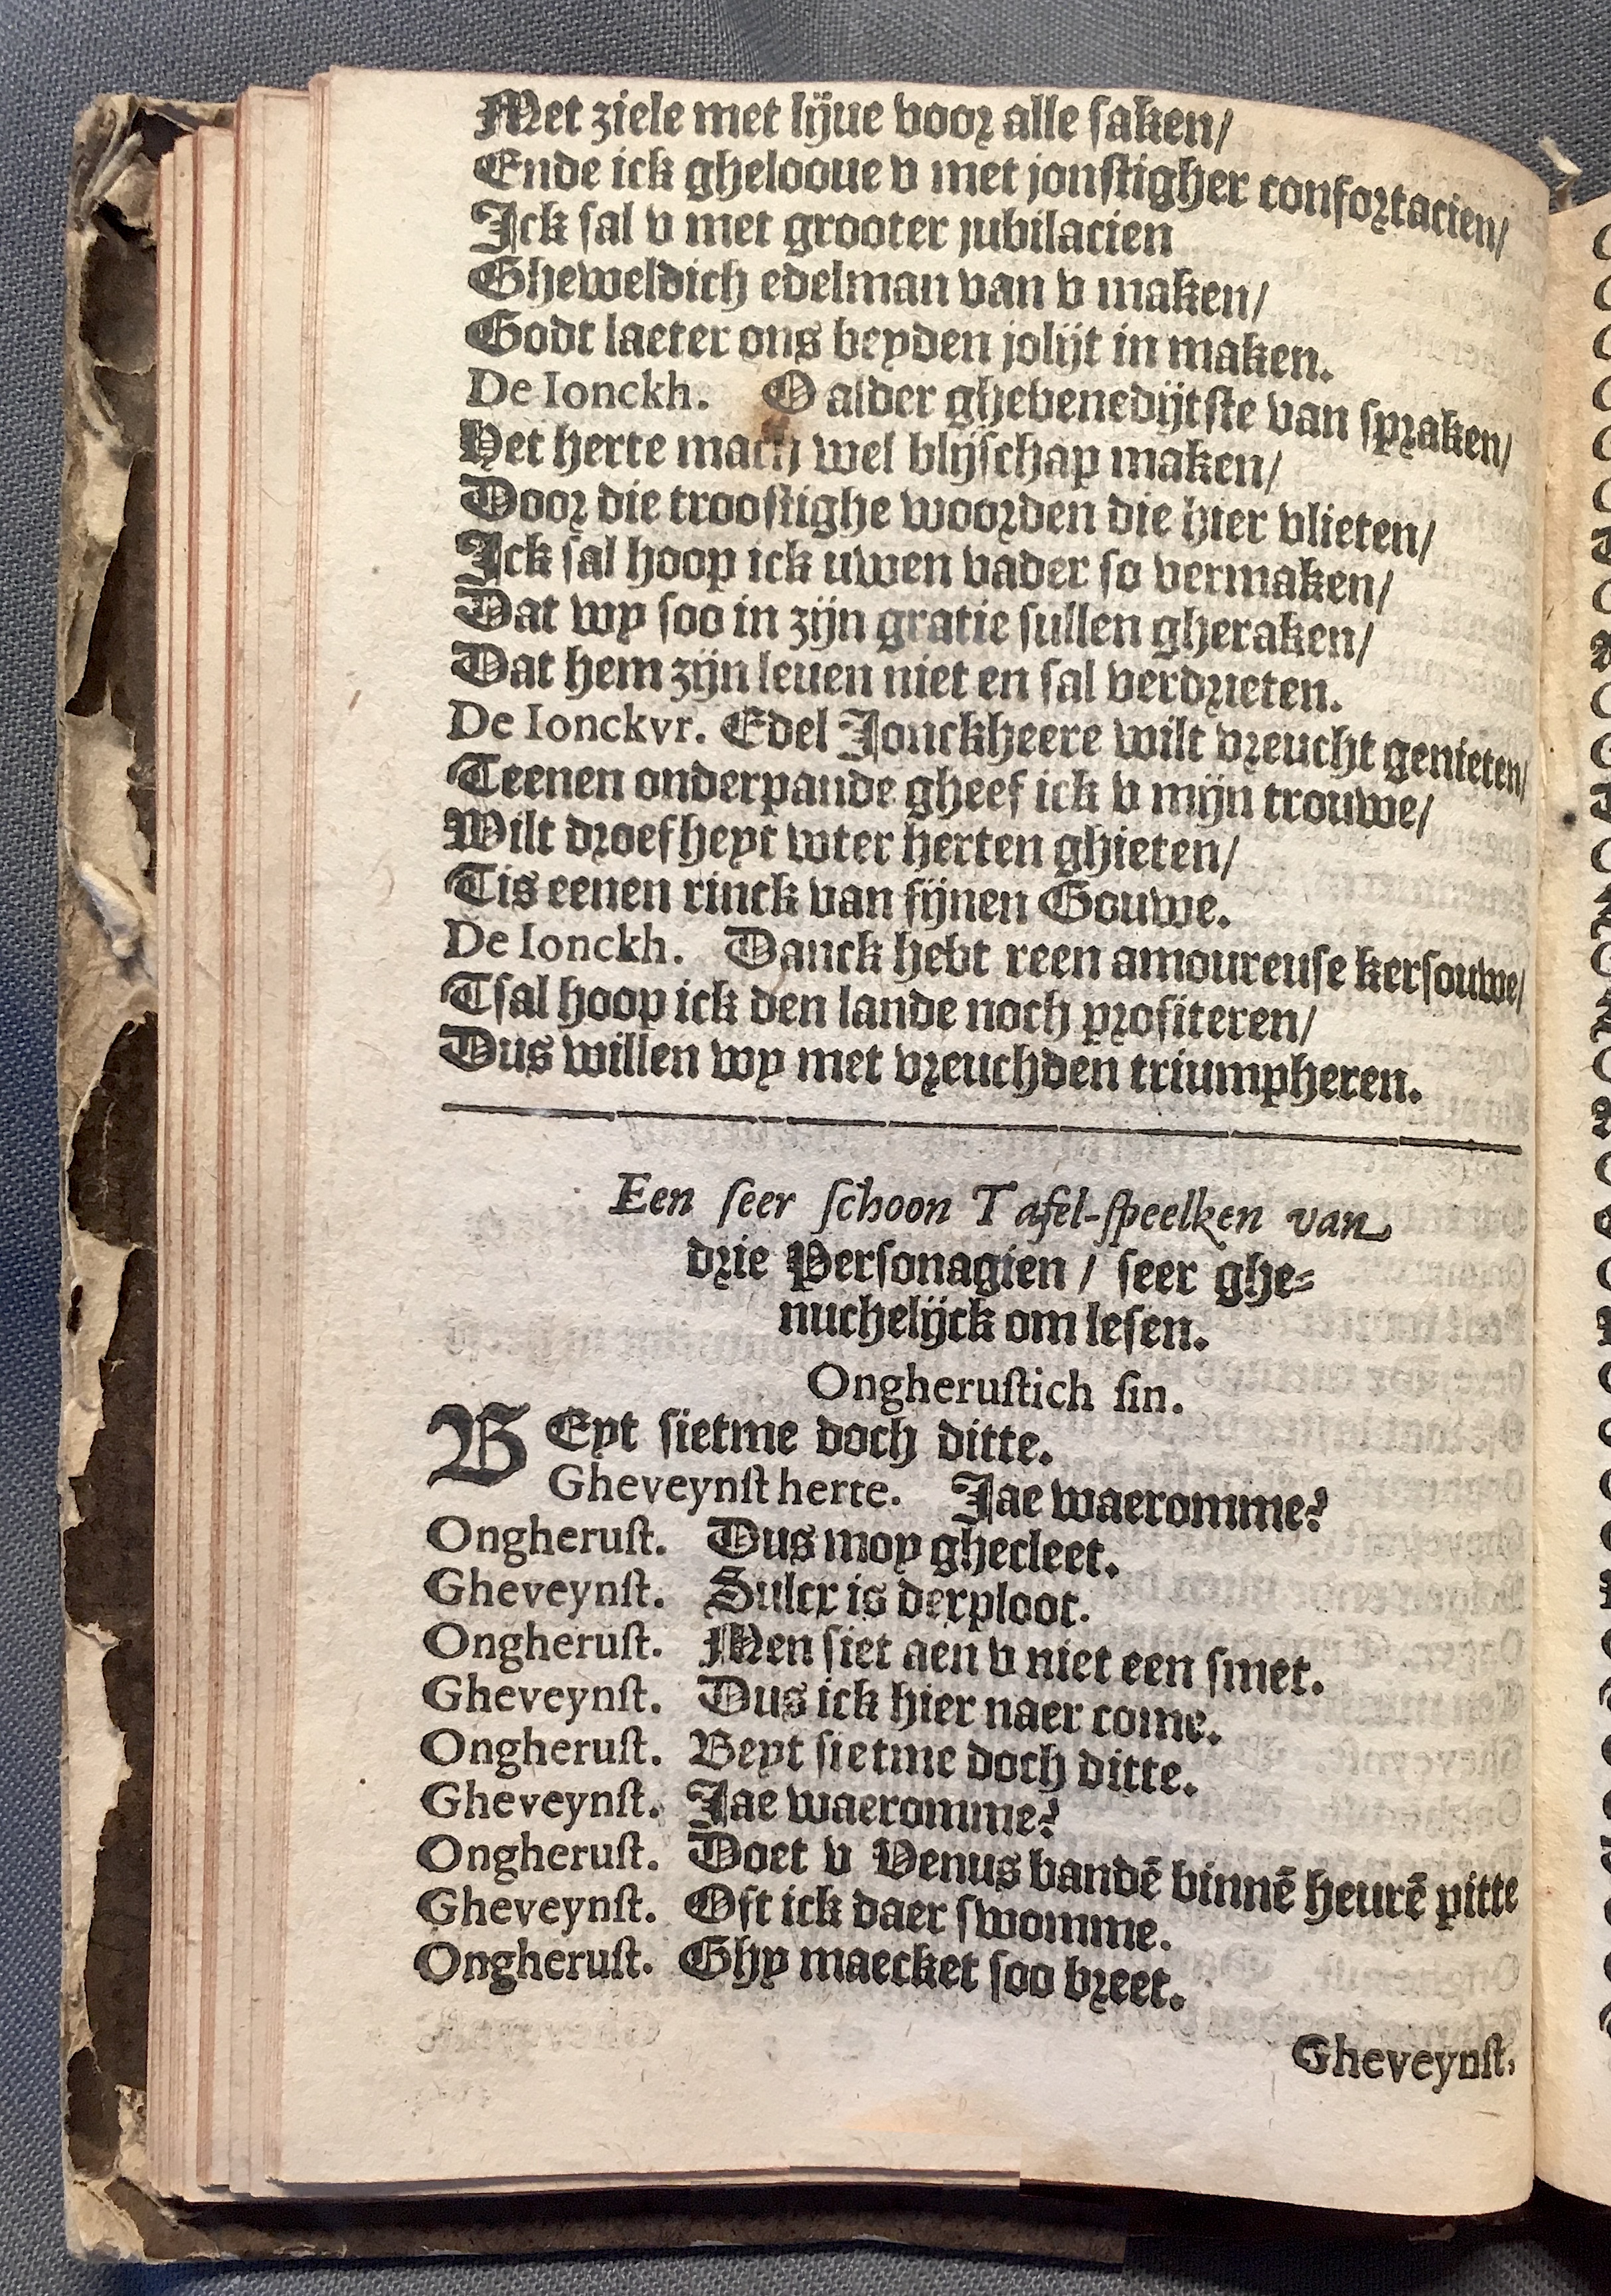 Met ziele met lijue voor alle saken/
Ende ick ghelooue v met jonstigher confortacien/
Ick sal v met grooter jubilacien
Gheweldich edelman van v maken/
Godt laeter ons beyden jolijt in maken.
De Ionckh. O alder ghebenedijtste van spraken/
Het herte mach wel blijschap maken/
Door die troostighe woorden die hier vlieten/
Ick sal hoop ick uwen vader so vermaken/
Dat wy soo in zijn gratie sullen gheraken/
Dat hem zijn leuen niet en sal verdrieten.
De Ionckvr. Edel Jonckheere wilt vreucht genieten/
Teenen onderpande gheef ick v mijn trouwe/
Wilt droefheyt wter herten ghieten/
Tis eenen rinck van fijnen Gouwe.
De Ionckh. Danck hebt reen amoureuse kersouwe/
Tsal hoop ick den lande noch profiteren/
Dus willen wy met vreuchden triumpheren.
Een seer schoon Tafel-speelken van
drie Personagien / seer ghe-
nuchelijck om lesen.
Ongherustich sin.
BEyt sietme doch ditte.
Gheveynst herte. Jae waeromme?
Ongherust. Dus moy ghecleet.
Gheveynst. Sulcx is derploot.
Ongherust. Men siet aen v niet een smet.
Gheveynst. Dus ick hier naer come.
Ongherust. Beyt sietme doch ditte.
Gheveynst. Jae waeromme?
Ongherust. Doet v Venus bandē binnē heurē pitte
Gheveynst. Oft ick daer swomme.
Ongherust. Ghy maecket soo breet.
Gheveynst.